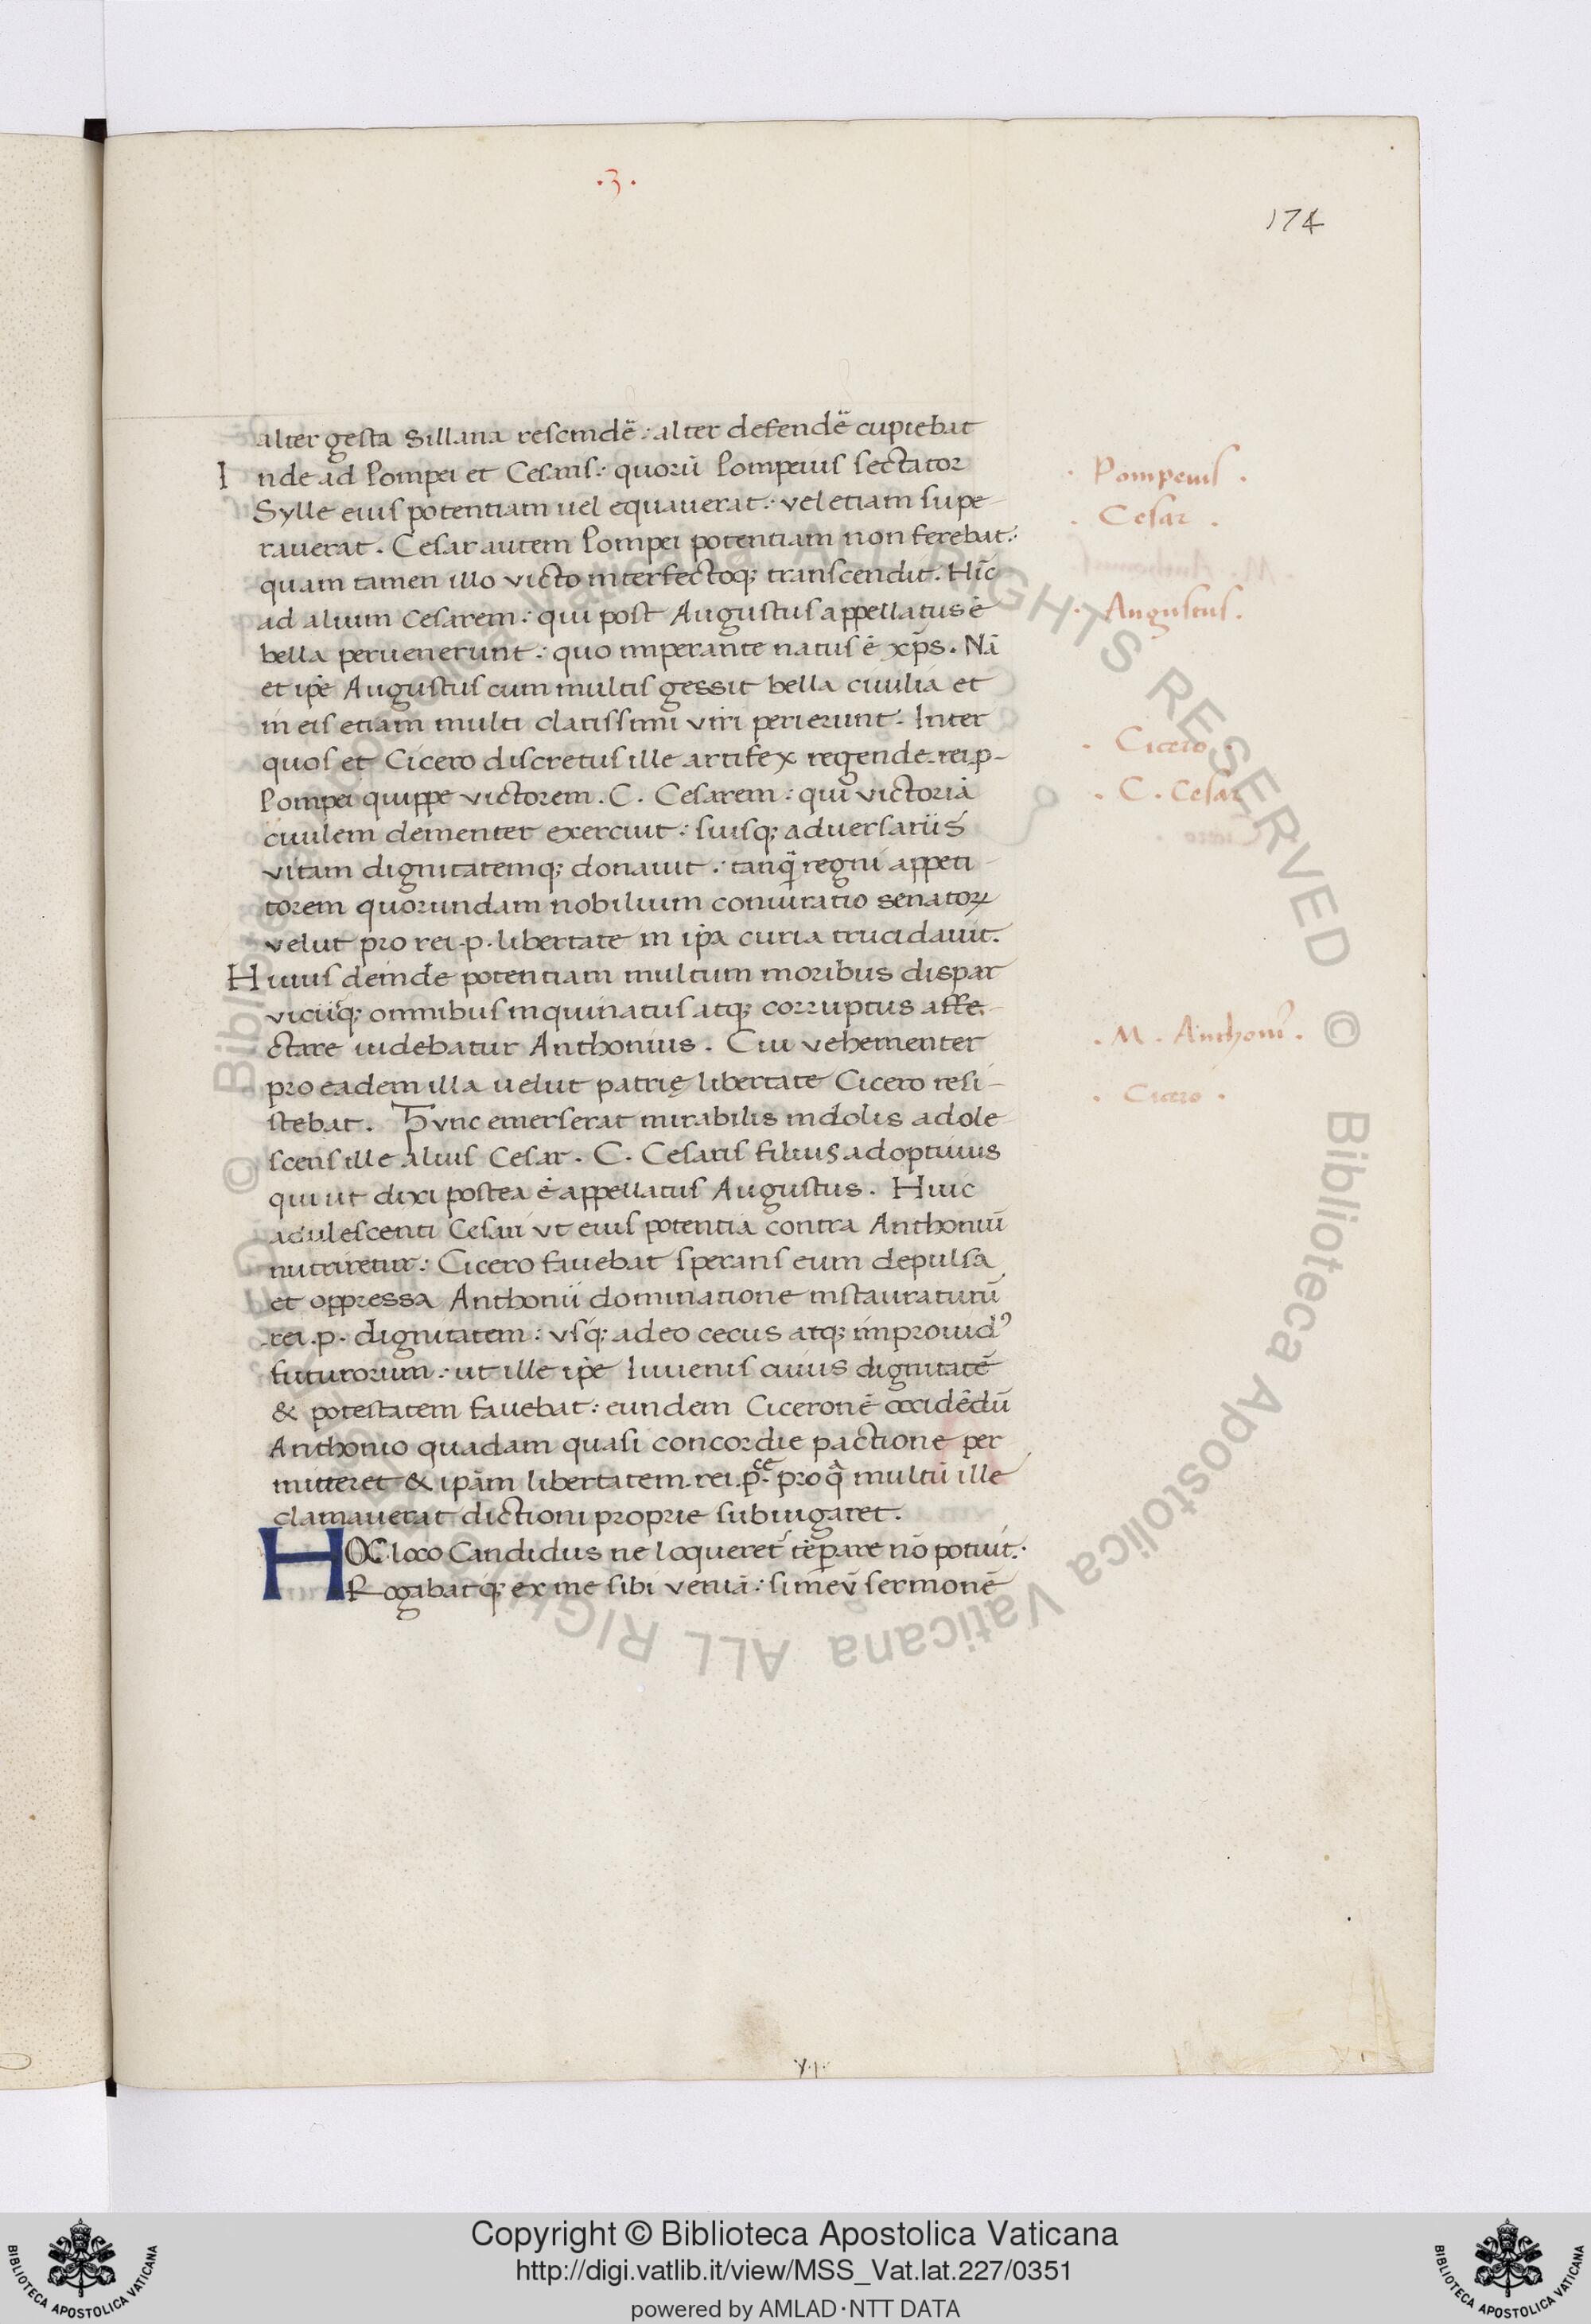 .3.
174
alter gesta Sillana rescindē: alter defendē cupiebat
Inde ad Pompei et Cesaris: quorū Pompeius sectator
Sylle eius potentiam uel equauerat: vel etiam supe-
rauerat. Cesar autem Pompei potentiam non ferebat:
quam tamen illo victo interfectoq; transcendit. Hīc
ad alium Cesarem: qui post Augustus appellatus ē
bella peruenerunt: quo imperante natus ē xp̄s. Nā
et ip̄e Augustus cum multis gessit bella ciuilia et
in eis etiam multi clarissimi viri perierunt. Inter
quos et Cicero discretus ille artifex regende rei.p-
Pompei quippe victorem. C. Cesarem: qui victoriā
ciuilem clementer exercuit: suisq; aduersariis
vitam dignitatemq; donauit: tanq̄ regni appeti-
torem quorundam nobilium coniuratio senatoꝝ
velut pro rei.p. libertate in ip̄a curia trucidauit.
Huius deinde potentiam multum moribus dispar
viciisq; omnibus inquinatus atq; corruptus affe-
ctare uidebatur Anthonius. Cui vehementer
pro eadem illa uelut patrię libertate Cicero resi-
stebat. Tunc emerserat mirabilis indolis adole
scens ille alius Cesar. C. Cesaris filius adoptiuus
qui ut dixi postea ē appellatus Augustus. Huic
adulescenti Cesari vt eius potentia contra Anthoniū
nutriretur: Cicero fauebat sperans eum depulsa
et oppressa Anthonii dominatione instauraturū
rei.p. dignitatem: vsq; adeo cecus atq; improuidꝰ
futurorum: ut ille ip̄e Iuuenis cuius dignitatē
& potestatem fauebat: eundem Ciceronē occidēdū
Anthonio quadam quasi concordie pactione per
mitteret & ip̄am libertatem rei.p.ce pro q̄ multū ille
clamauerat dictioni proprie subiugaret.
HOC loco Candidus ne loqueret' tēꝑare nō potuit:
Rogabatq; ex me sibi veniā: si meū sermonē
. Pompeius .
. Cesar .
. Augustus.
. Cicero .
. C. Cesar
. M. Anthoni'.
. Cicero .
© Biblioteca Apostolica Vaticana ALL RIGHTS RESERVED
Copyright © Biblioteca Apostolica Vaticana
http://digi.vatlib.it/view/MSS_Vat.lat.227/0351
powered by AMLAD·NTT DATA
BIBLIOTECA APOSTOLICA VATICANA
BIBLIOTECA APOSTOLICA VATICANA